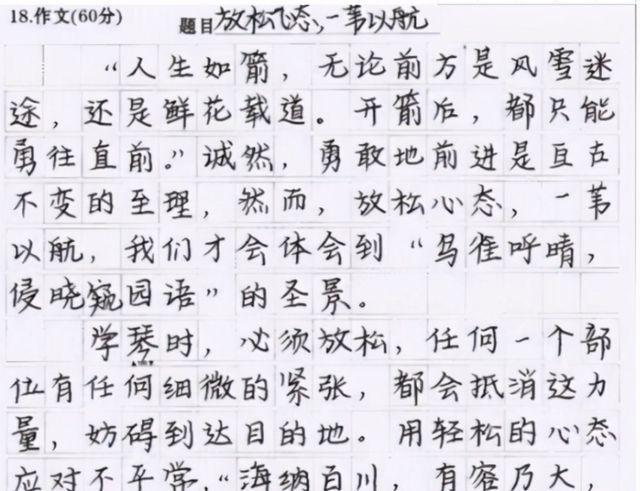 18.作文(60分) 题目 放松心态,一苇以航
“人生如箭，无论前方是风雪迷
途，还是鲜花载道。开箭后，都只能
勇往直前。”诚然，勇敢地前进是亘古
不变的至理，然而，放松心态，一苇
以航，我们才会体会到“鸟雀呼晴，
侵晓窥园语”的圣景。
学琴时，必须放松，任何一个部
位有任何细微的紧张，都会抵消这力
量，妨碍到达目的地。用轻松的心态
应对不平常，“海纳百川，有容乃大，